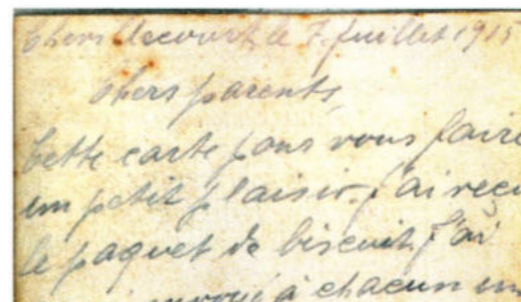 le 7 Juillet 1915
Chers parents
Cette carte pour vous faire
un petit plaisir. j'ai reçu
le paquet de biscuit j'ai
envoyé à chacun un